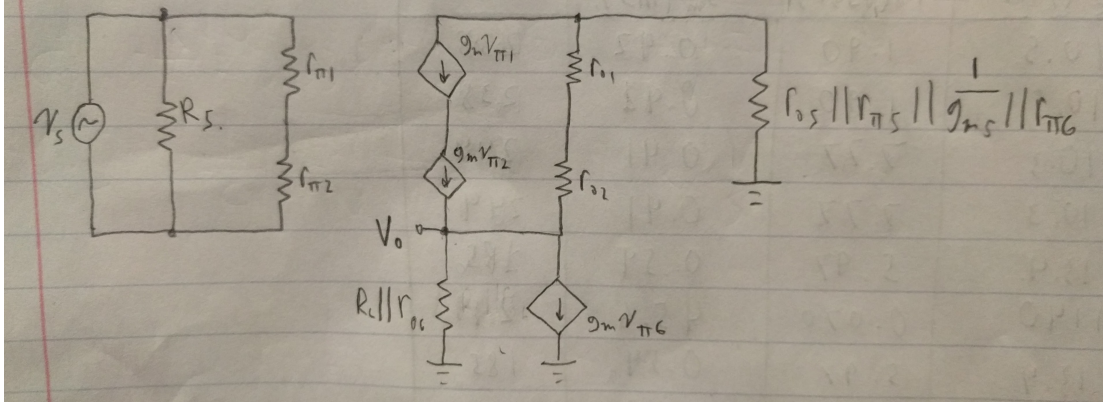 V_s
R_s
r_π1
r_π2
g_m V_π1
g_m V_π2
V_o
R_c||r_o6
r_o1
r_o2
g_m V_π6
r_o5 || r_π5 || 1/g_m5 || r_π6